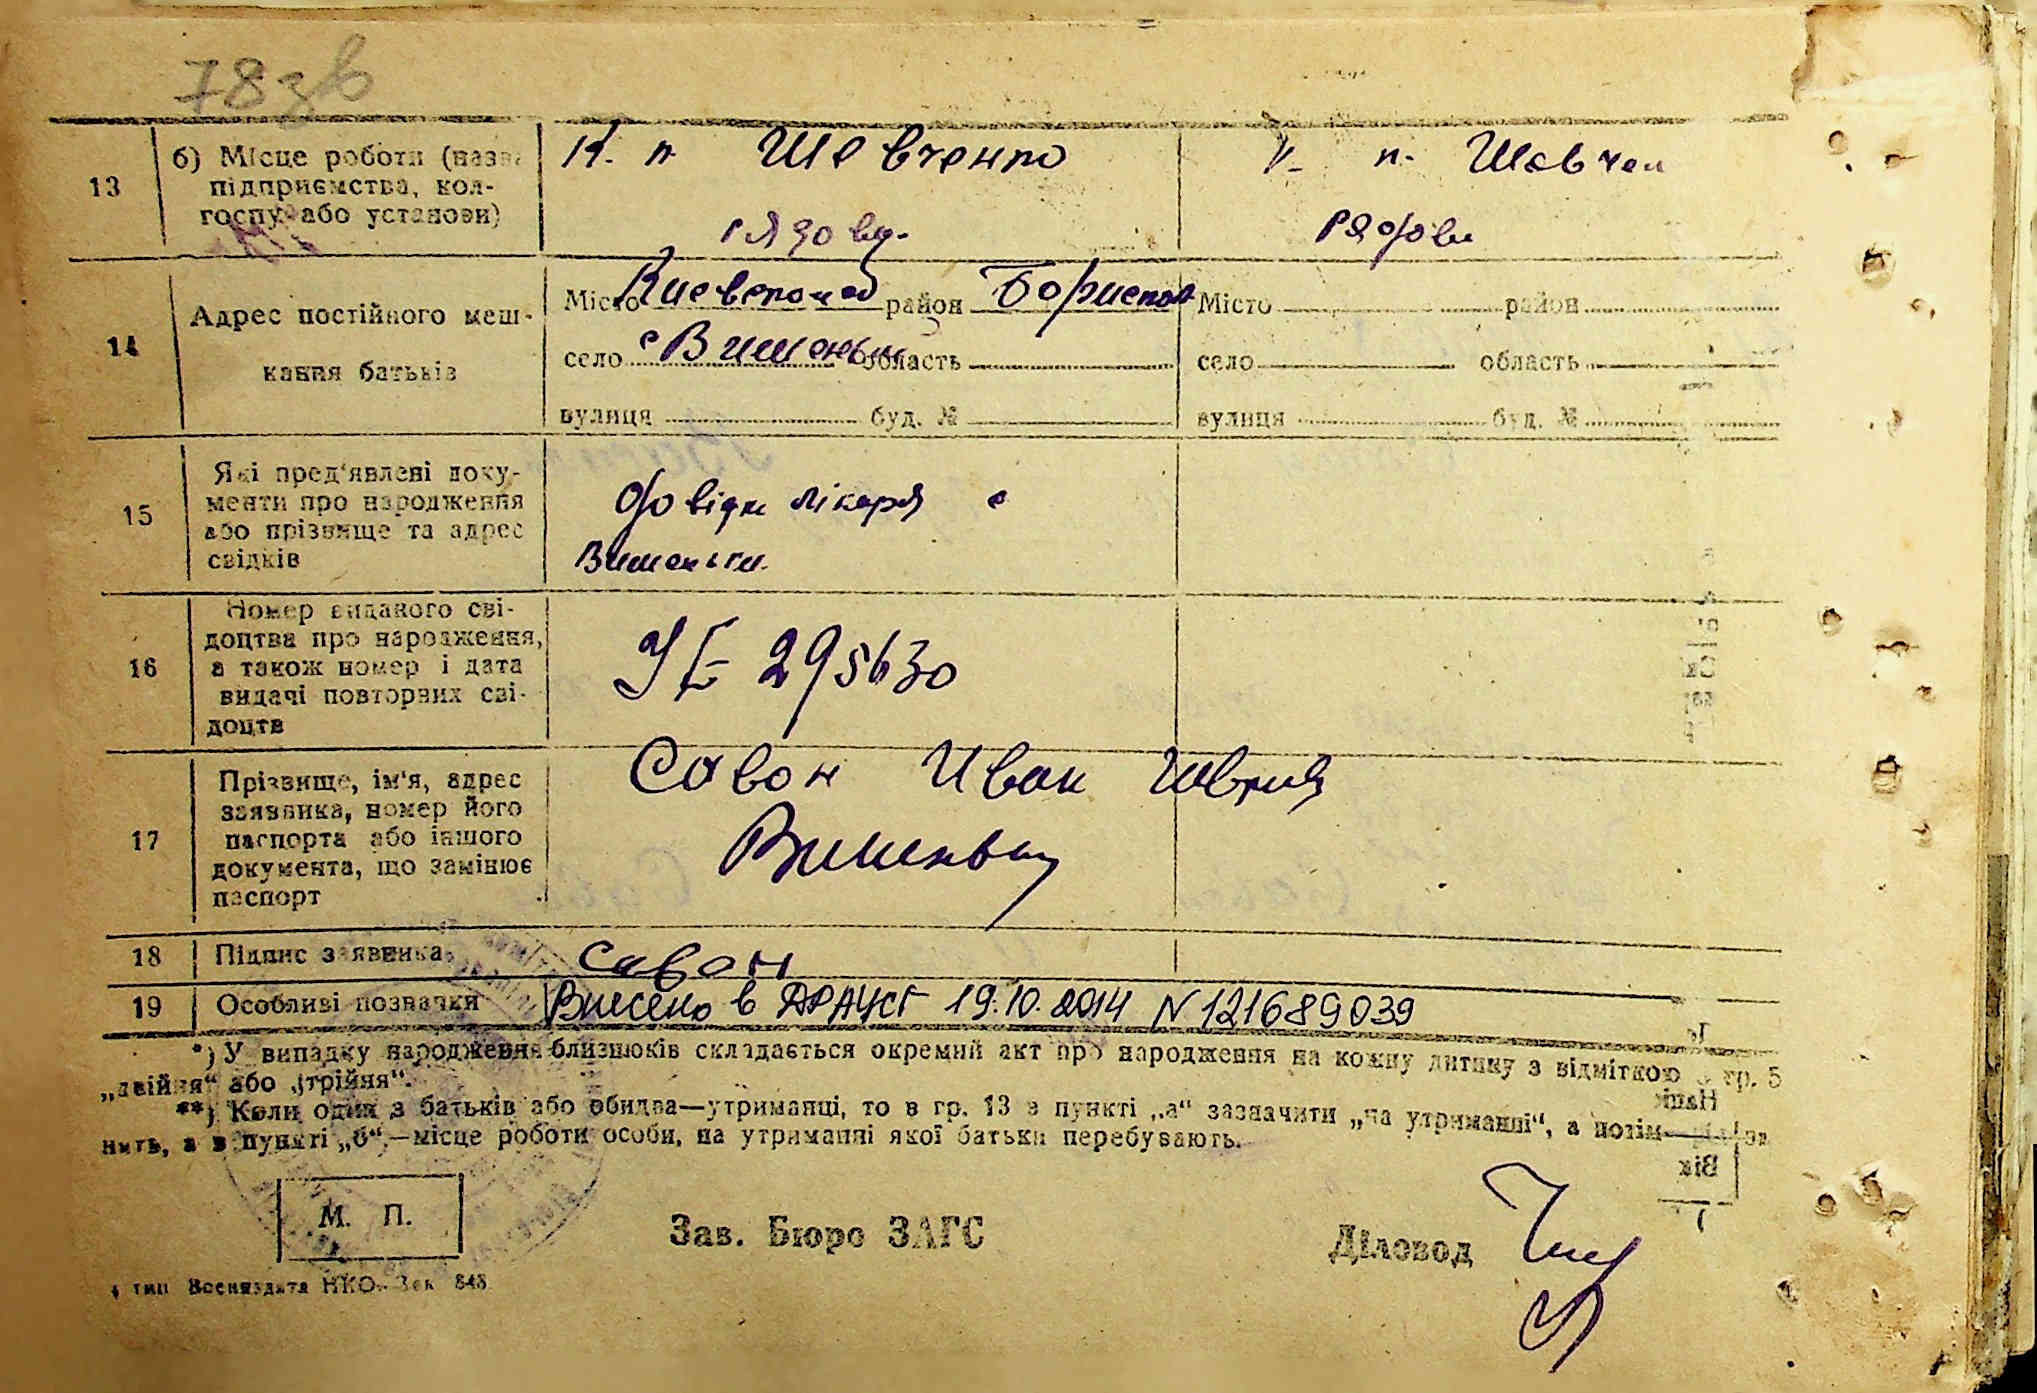 78 зв
13 б) Місце роботи (назва К. п Шевченко К. п. Шевчен
підприємства, кол-
госпу або установи) рядови рядови
14 Адрес постійного меш- Місто Киевской об район Бориспол Місто район
кання батьків село с Вишеньки область село область
вулиця буд. № вулиця буд. №
15 Які пред'явлені доку-
менти про народження довідки лікаря с
або прізвище та адрес
свідків Вишеньки
Номер виданого сві-
доцтва про народження,
16 а також номер і дата УЕ 295630
видачі повторних сві-
доцтв
Прізвище, ім'я, адрес Савон Иван
заявника, номер його
17 паспорта або іншого Вишеньки
документа, що замінює
паспорт
18 Підпис заявника Савон
19 Особливі позначки Внесено в ДРАЦСГ 19.10.2014 N 121689039
*) У випадку народження близнюків складається окремий акт про народження на кожну дитину з відміткою в гр. 5
„двійня“ або „трійня“.
**) Коли один з батьків або обидва—утриманці, то в гр. 13 в пункті „а“ зазначити „на утриманні“, а потім
нить, а в пункті „б“—місце роботи особи, на утриманні якої батьки перебувають.
М. П. Зав. Бюро ЗАГС Діловод
тип Воениздата НКО Зак 848